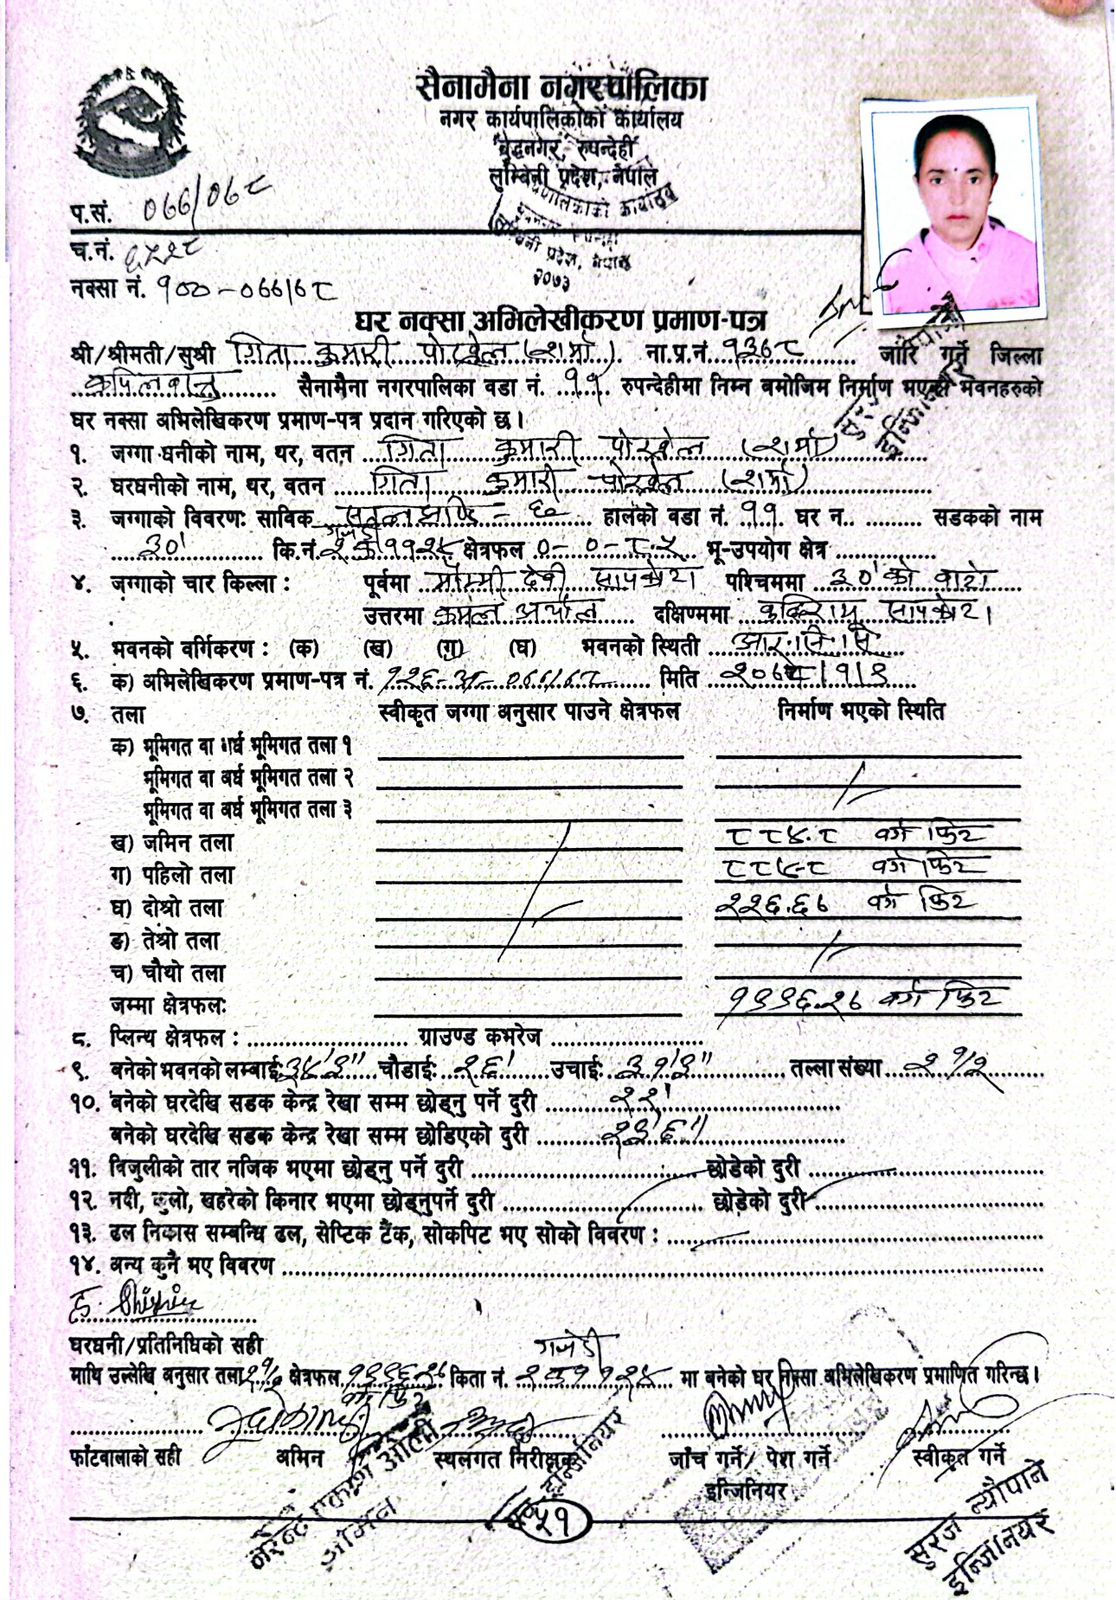 सैनामैना नगरपालिका
नगर कार्यपालिकाको कार्यालय
बुद्धनगर, रुपन्देही
लुम्बिनी प्रदेश, नेपाल
२०७३
प.सं. ०७७/०७८
च.नं.
नक्सा नं. १००-०७७/७८
घर नक्सा अभिलेखीकरण प्रमाण-पत्र
श्री/श्रीमती/सुश्री गिता कुमारी पोखरेल (शर्मा) ना.प्र.नं. जारि गर्ने जिल्ला
कपिलवस्तु सैनामैना नगरपालिका वडा नं. ११ रुपन्देहीमा निम्न बमोजिम निर्माण भएको भवनहरुको
घर नक्सा अभिलेखिकरण प्रमाण-पत्र प्रदान गरिएको छ।
१. जग्गा धनीको नाम, थर, वतन गिता कुमारी पोखरेल (शर्मा)
२. घरधनीको नाम, थर, वतन गिता कुमारी पोखरेल (शर्मा)
३. जग्गाको विवरणः साविक हालको वडा नं. ११ घर न. सडकको नाम
३०' कि.नं. गजेडी २क ११२४ क्षेत्रफल ०-०-८.५ भू-उपयोग क्षेत्र
४. जग्गाको चार किल्ला : पूर्वमा देवी सापकोटा पश्चिममा ३०' को बाटो
उत्तरमा कमल अर्याल दक्षिणमा सापकोटा।
५. भवनको वर्गिकरण : (क) (ख) (ग) (घ) भवनको स्थिती आर.सि.सि
६. क) अभिलेखिकरण प्रमाण-पत्र नं. मिति
७. तला स्वीकृत जग्गा अनुसार पाउने क्षेत्रफल निर्माण भएको स्थिति
क) भूमिगत वा अर्ध भूमिगत तला १
भूमिगत वा अर्ध भूमिगत तला २
भूमिगत वा अर्ध भूमिगत तला ३
ख) जमिन तला ८८४.८ वर्ग फिट
ग) पहिलो तला ८८४.८ वर्ग फिट
घ) दोश्रो तला २२६.६७ वर्ग फिट
ङ) तेश्रो तला
च) चौथो तला
जम्मा क्षेत्रफलः १९९६.२७ वर्ग फिट
८. प्लिन्थ क्षेत्रफल : ग्राउण्ड कभरेज
९. बनेको भवनको लम्बाईः ३४'३" चौडाईः २६' उचाईः ३१'३" तल्ला संख्या २ १/२
१०. बनेको घरदेखि सडक केन्द्र रेखा सम्म छोड्नु पर्ने दुरी २२'
बनेको घरदेखि सडक केन्द्र रेखा सम्म छोडिएको दुरी २२'६"
११. विजुलीको तार नजिक भएमा छोड्नु पर्ने दुरी छोडेको दुरी
१२. नदी, कुलो, खहरेको किनार भएमा छोड्नुपर्ने दुरी छोडेको दुरी
१३. ढल निकास सम्बन्धि ढल, सेप्टिक टैंक, सोकपिट भए सोको विवरण :
१४. अन्य कुनै भए विवरण
घरधनी/प्रतिनिधिको सही
माथि उल्लेखि अनुसार तला २ १/२ क्षेत्रफल १९९६.२७ वर्ग फिट किता नं. गजेडी २क ११२४ मा बनेको घर नक्सा अभिलेखीकरण प्रमाणित गरिन्छ।
फाँटवालाको सही अमिन स्थलगत निरीक्षक जाँच गर्ने/ पेश गर्ने स्वीकृत गर्ने
इन्जिनियर
नरेन्द्र प्रकाश ओली
अमिन
सव इन्जिनियर
सुरज न्यौपाने
इन्जिनियर
५१